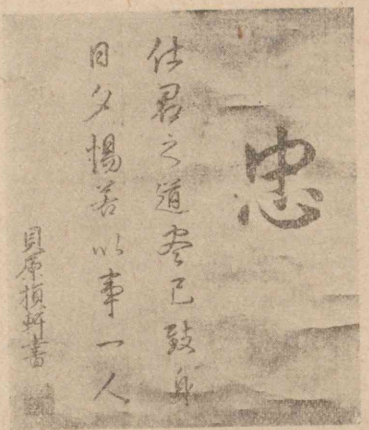 忠
仕君之道尽己致身
日夕惕若以事一人
貝原損軒書